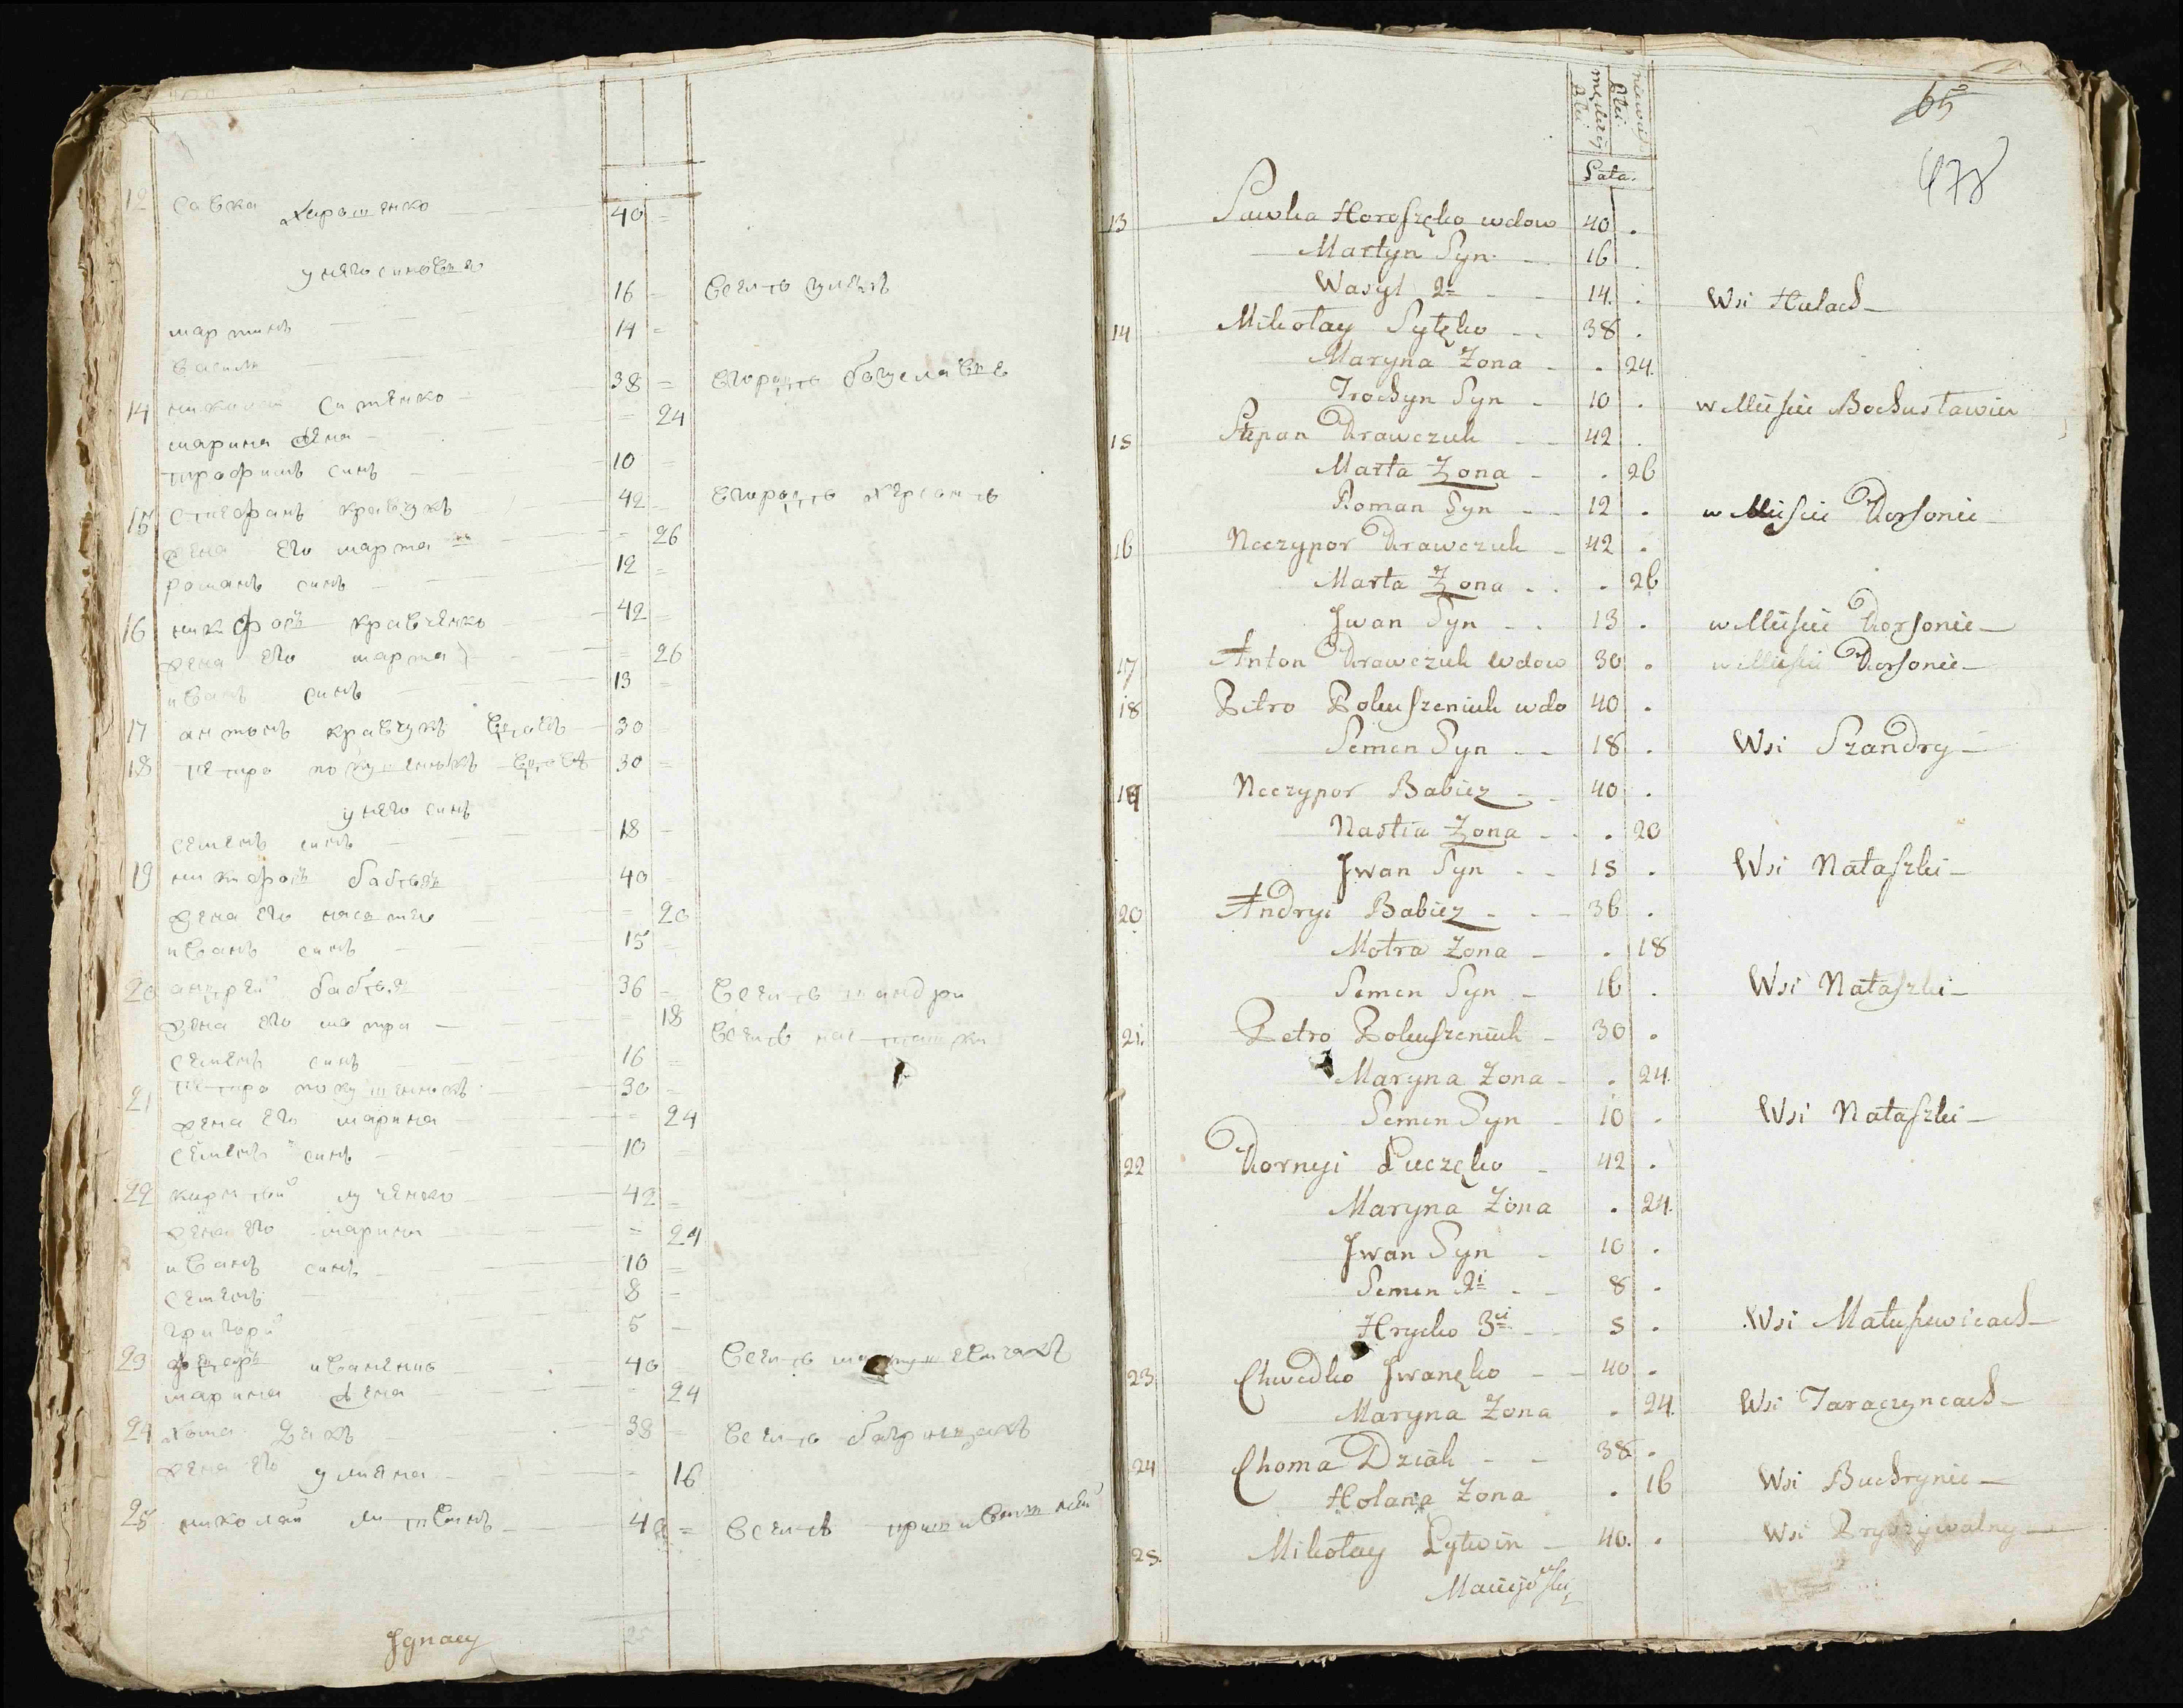 12 Савка Харошенко 40 =
у него синовья
мартинъ 16 =
василь 14 =
14 николай Ситенко 38 =
марина жена = 24
трофимъ синъ 10
15 стефанъ кравчукъ 42
жена его марта = 26
романъ синъ 12 =
16 никифоръ кравченко 42
жена его марта = 26
иванъ синъ 13
17 антонъ кравчукъ вдовъ 30
18 петро покушенюкъ вдовъ 30 =
у него синъ
семенъ синъ 18
19 никифоръ бабичъ 40
жена его настя 20
иванъ синъ 15
20 андрей бабичъ 36
жена его мотра 18
семенъ синъ 16
21 петро покушенюкъ 30
жена его марина 24
семенъ синъ 10
22 корней лученко 42
жена его марина = 24
иванъ синъ 10
семенъ 8
григорий 5
23 федоръ иваненко 40
марина жена 24
24 Хома дякъ 38
жена его улияна 16
25 николай литвинъ 4
Ignacy
65
478
Lata.
13 Sawka Horoszęko wdow 40 .
Martyn Syn 16
Wasyl 2 14 . Wsi Hulach
14 Mikołay Sytęko 38 .
Maryna Zona . 24.
Trochyn Syn 10 . w Mieście Bochusławiu
15 Stepan Krawczuk 42
Marta Zona . 26
Roman Syn 12 . w Mieście Korsonie
16 Neczypor Krawczuk 42 .
Marta Zona . 26
Jwan Syn 13 . w Mieście Korsonie
17 Anton Krawczuk wdow 30 . w Mieście Korsonie
18 Petro Pokuszeniuk wdo 40 .
Semen Syn 18 . Wsi Szandry
19 Neczypor Babicz 40 .
Nastia Zona . 20
Jwan Syn 15 . Wsi Nataszki
20 Andryi Babicz 36 .
Motra Zona . 18
Semen Syn 16 . Wsi Nataszki
21. Petro Pokuszeniuk 30 .
Maryna Zona . 24.
Semen Syn 10 . Wsi Nataszki
22 Kornyi Łuczęko 42 .
Maryna Zona . 24.
Jwan Syn 10 .
Semen 2i 8 .
Hryćko 3ci 5 . Wsi Matuszewicach
23 Chwedko Jwanęko 40 .
Maryna Zona . 24. Wsi Taraczyncach
24 Choma Dziak 38 .
Holana Zona . 16 Wsi Buchrynie
25. Mikołay Lytwin 40. . Wsi Pryszywalny